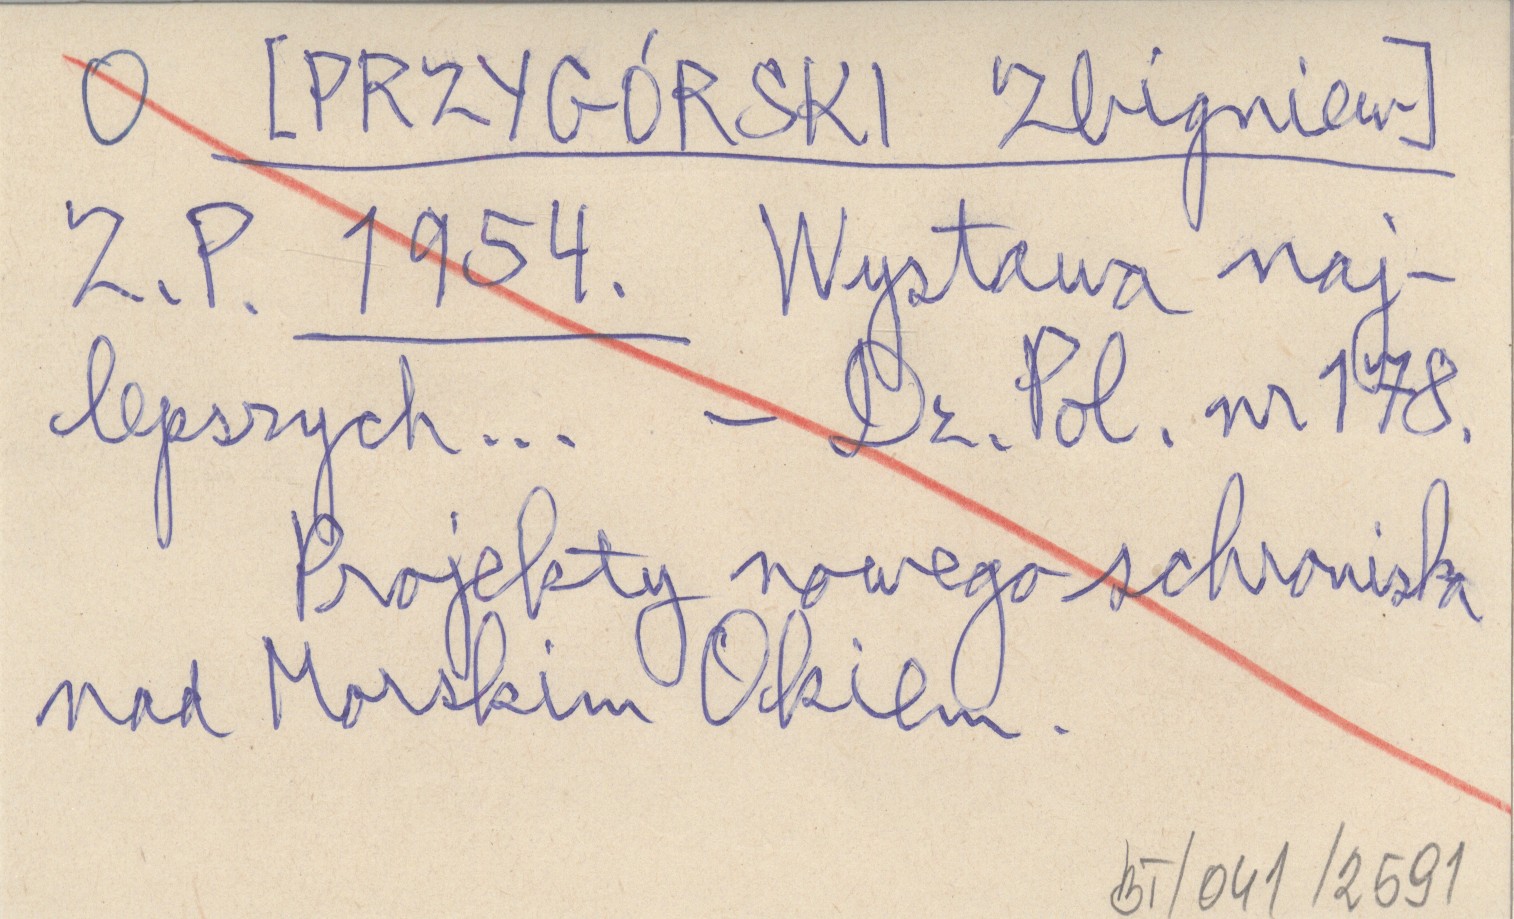 O [PRZYGÓRSKI Zbigniew]
Z.P. 1954. Wystawa naj-
lepszych... - Dz. Pol. nr 178.
Projekty nowego schroniska
nad Morskim Okiem.
BT/041/2691